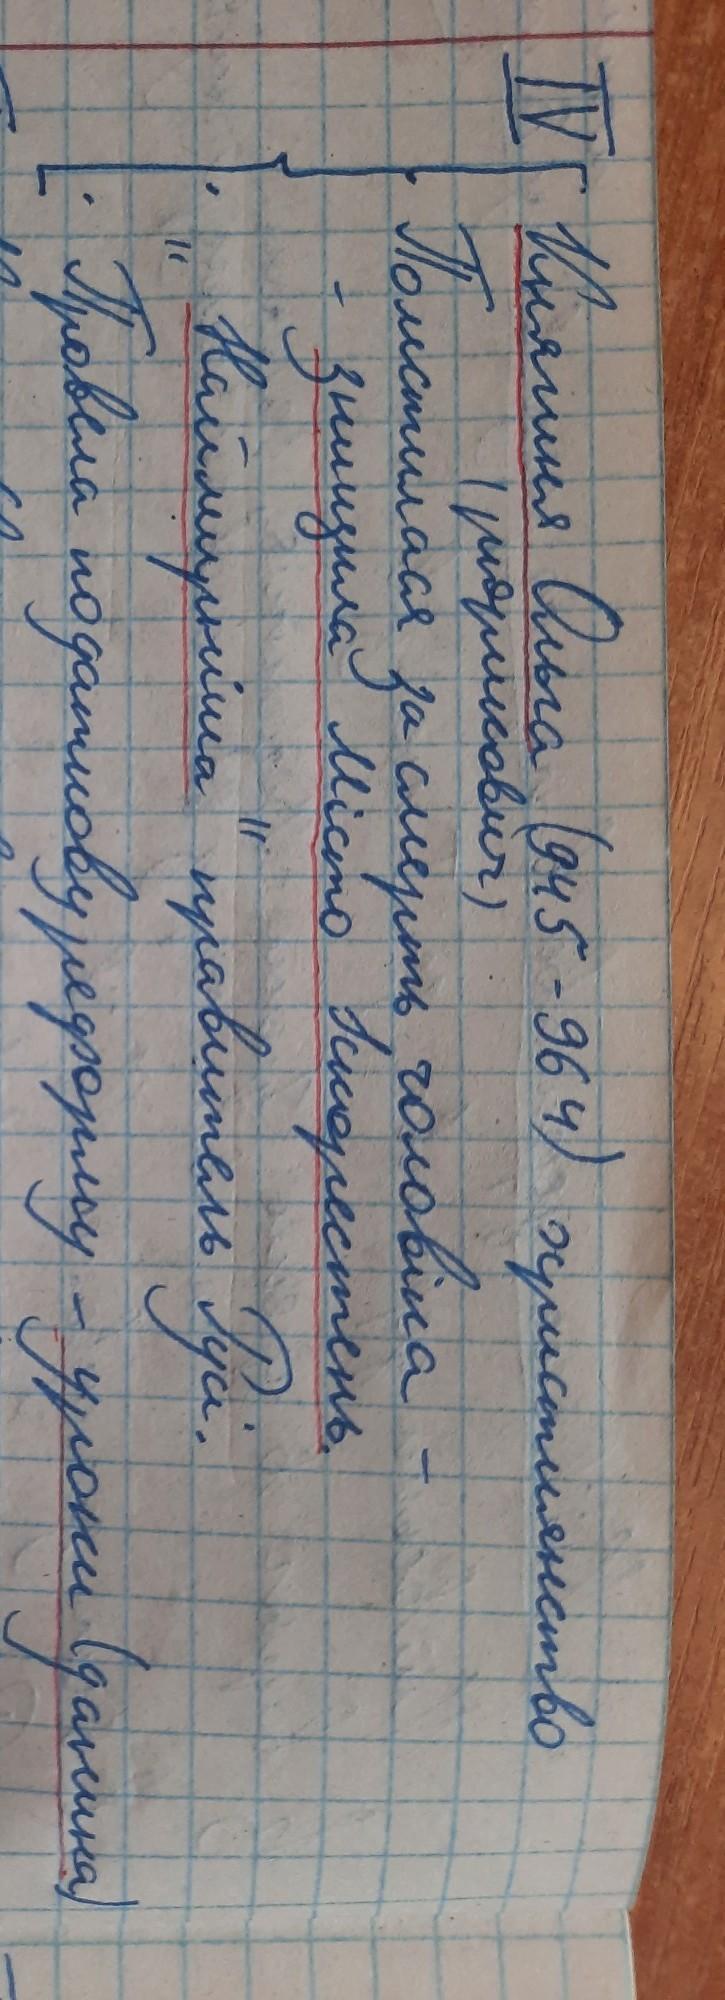 IV Княгиня Ольга (945-964) християнство
(рюрикович)
Помстилася за смерть чоловіка -
- знищила місто Іскоростень.
"Наймирніша" правитель Русі.
Провела податкову реформу - уроки (данина)